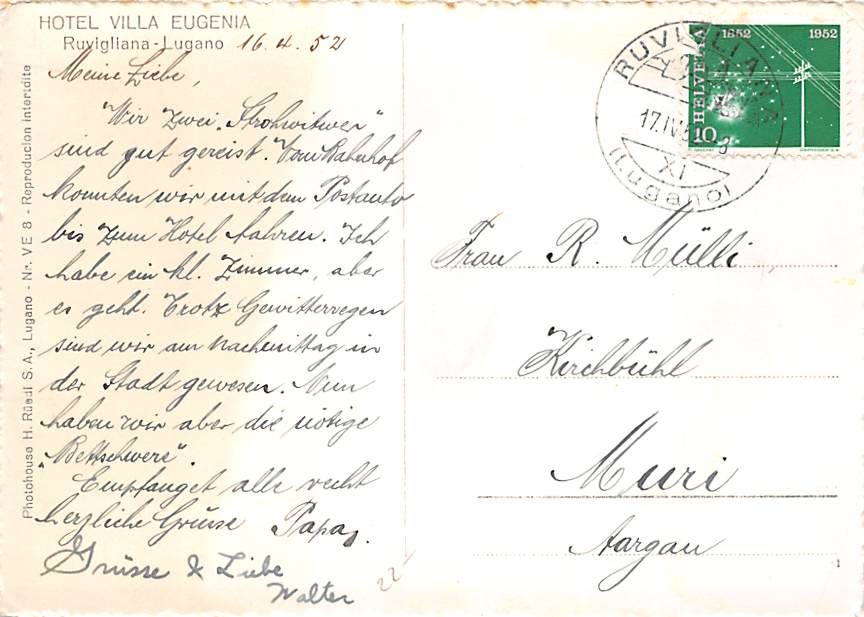 HOTEL VILLA EUGENIA
Ruvigliana-Lugano 16.4.52
Meine Liebe,
Wir zwei „Strohwitwer"
sind gut gereist. Vom Bahnhof
konnten wir mit dem Postauto
bis zum Hotel fahren. Ich
habe ein kl. Zimmer, aber
es geht. Trotz Gewitterregen
sind wir am Nachmittag in
der Stadt gewesen. Nun
haben wir aber die nötige
„Bettschwere".
Empfanget alle recht
herzliche Grüsse Papa.
Grüsse & Liebe
Walter
22
Photohouse H. Rüedi S.A., Lugano - Nr. VE 8 - Reproducion interdite
1852 1952
HELVETIA
10
RUVIGLIANA
17.IV
XI
(Lugano)
Frau R. Mülli
Kirchbühl
Muri
Aargau